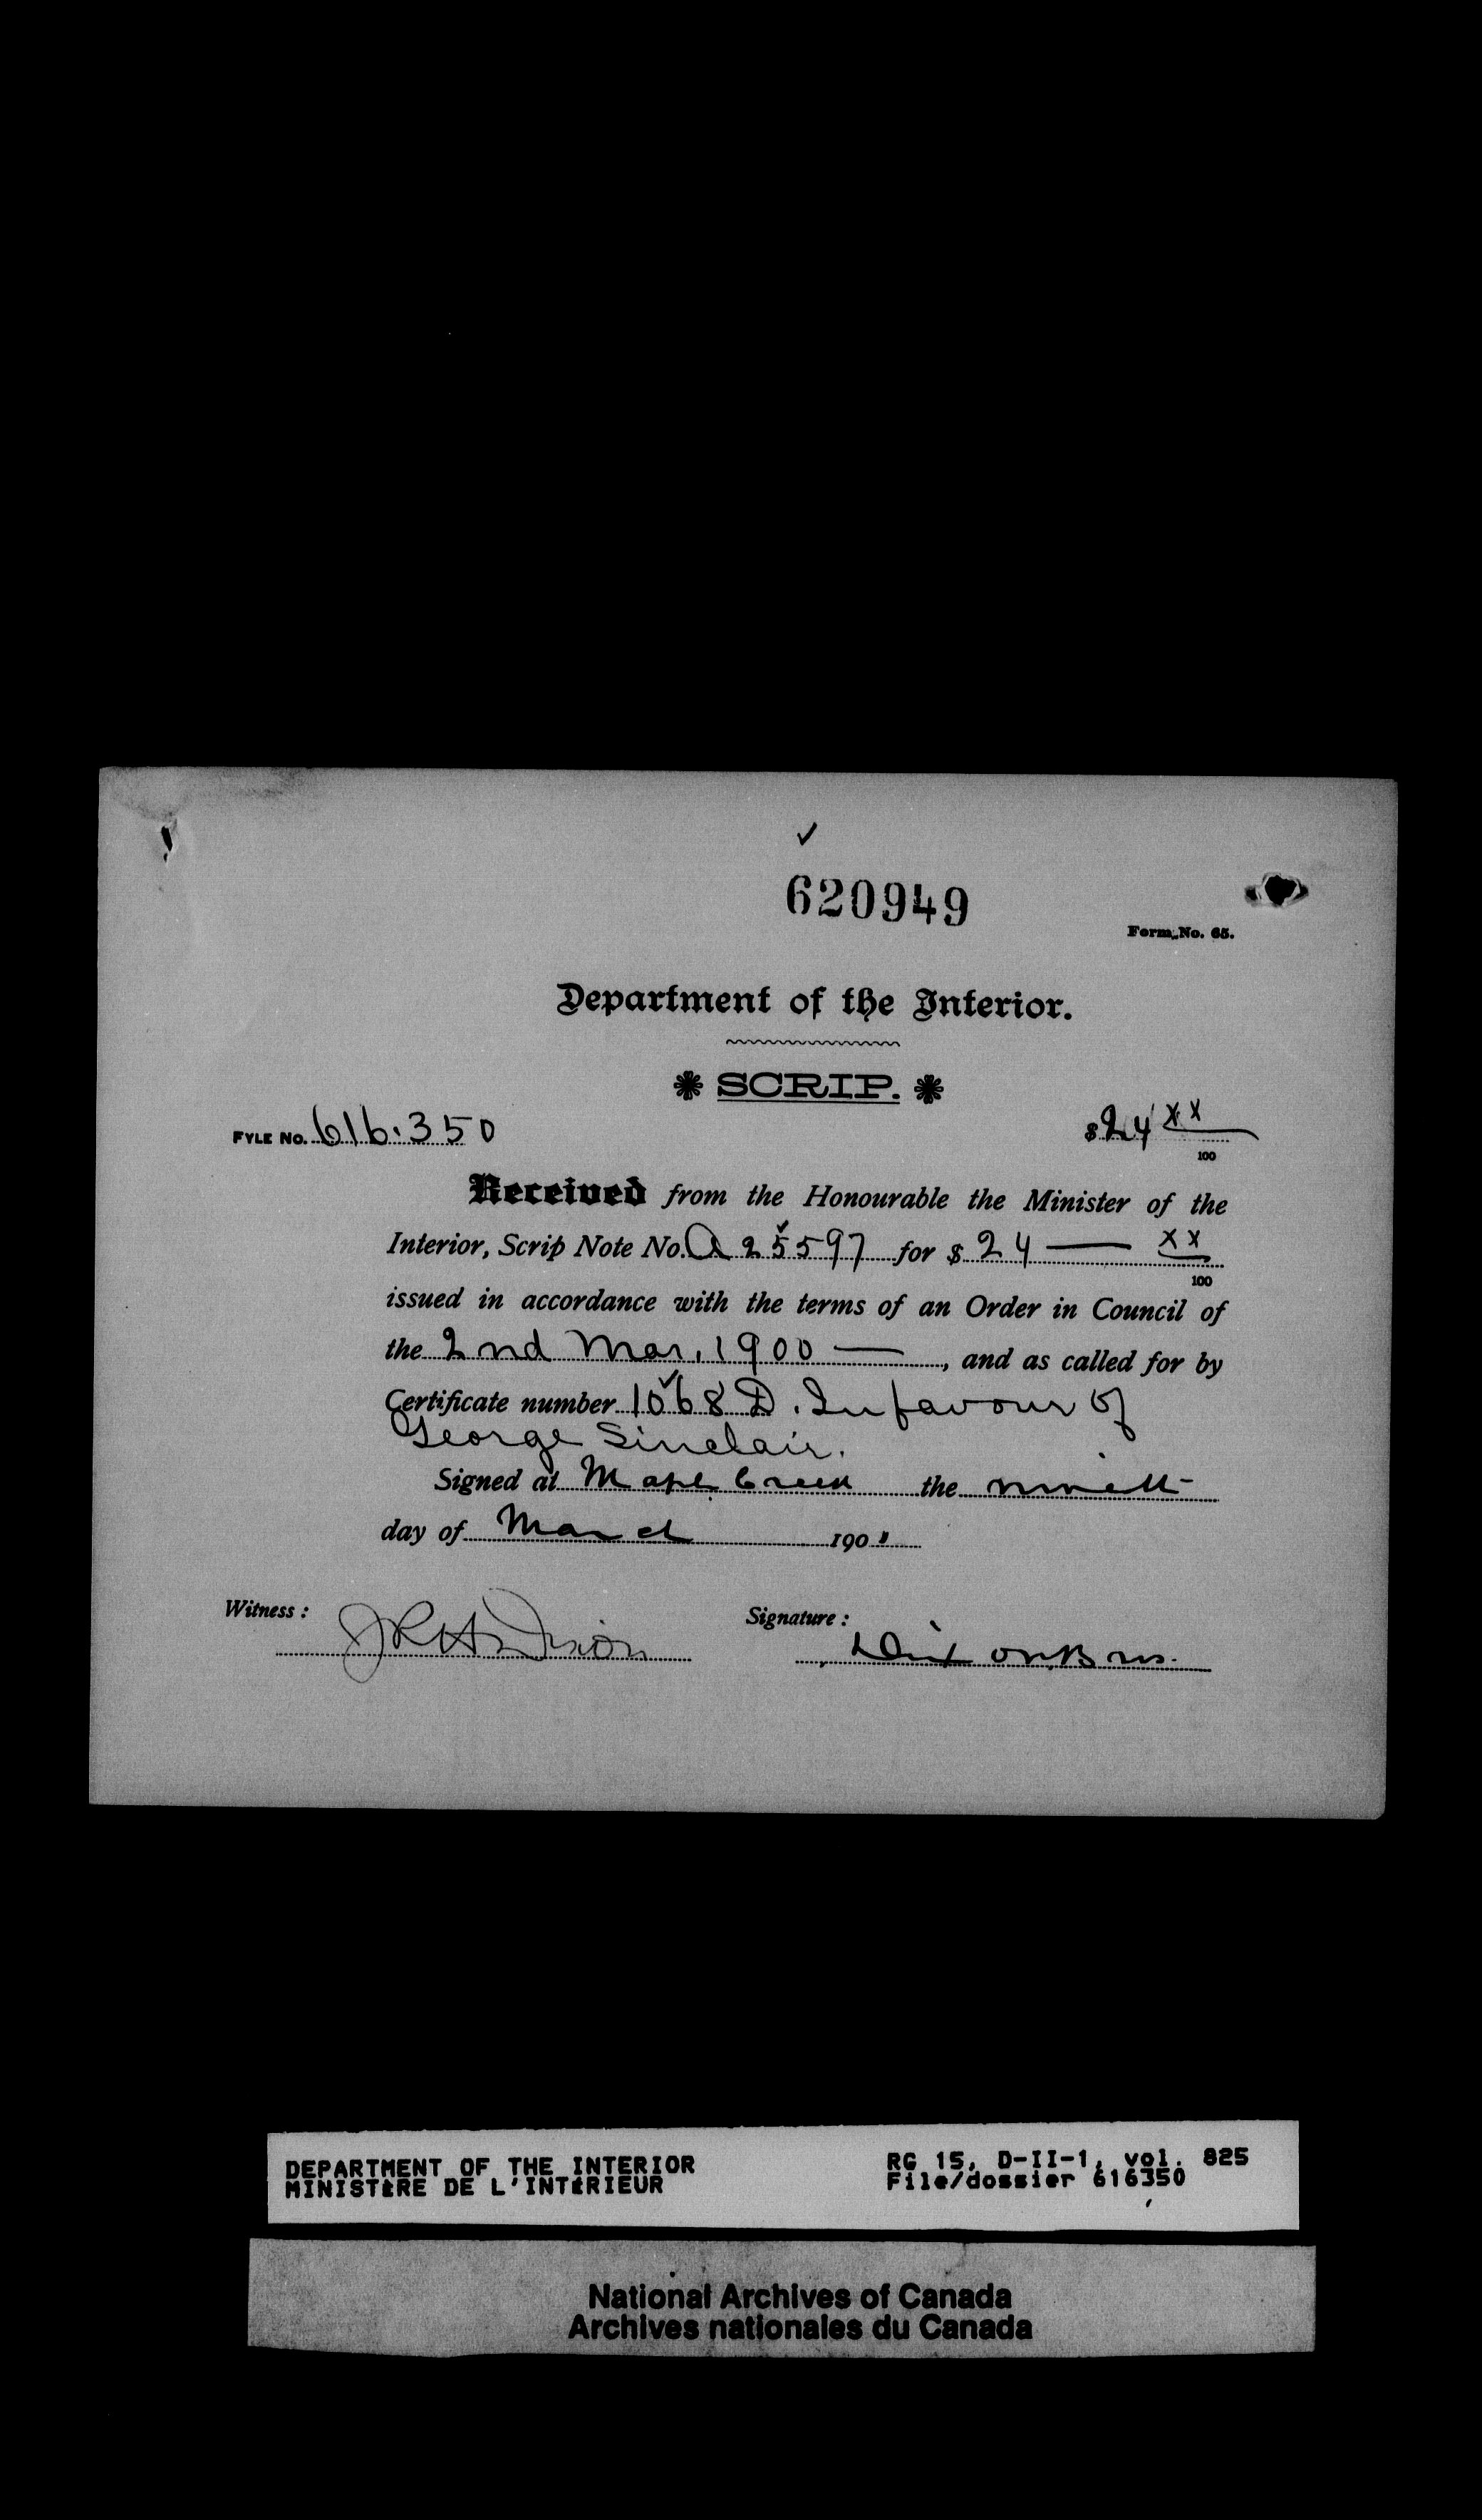 ✓
620949
Form No. 65.
Department of the Interior.
* SCRIP. *
FYLE No. 616.350
$24 xx/100
Received from the Honourable the Minister of the
Interior, Scrip Note No. A 25597 for $ 24 — xx/100
issued in accordance with the terms of an Order in Council of
the 2nd Mar, 1900 —, and as called for by
Certificate number 1068 D. In favour of
George Sinclair.
Signed at Maple Creek the ninth
day of March 1901
Witness: Signature:
JRH Dixon Dixon Bros.
DEPARTMENT OF THE INTERIOR RG 15, D-II-1, vol. 825
MINISTÈRE DE L'INTÉRIEUR File/dossier 616350
National Archives of Canada
Archives nationales du Canada